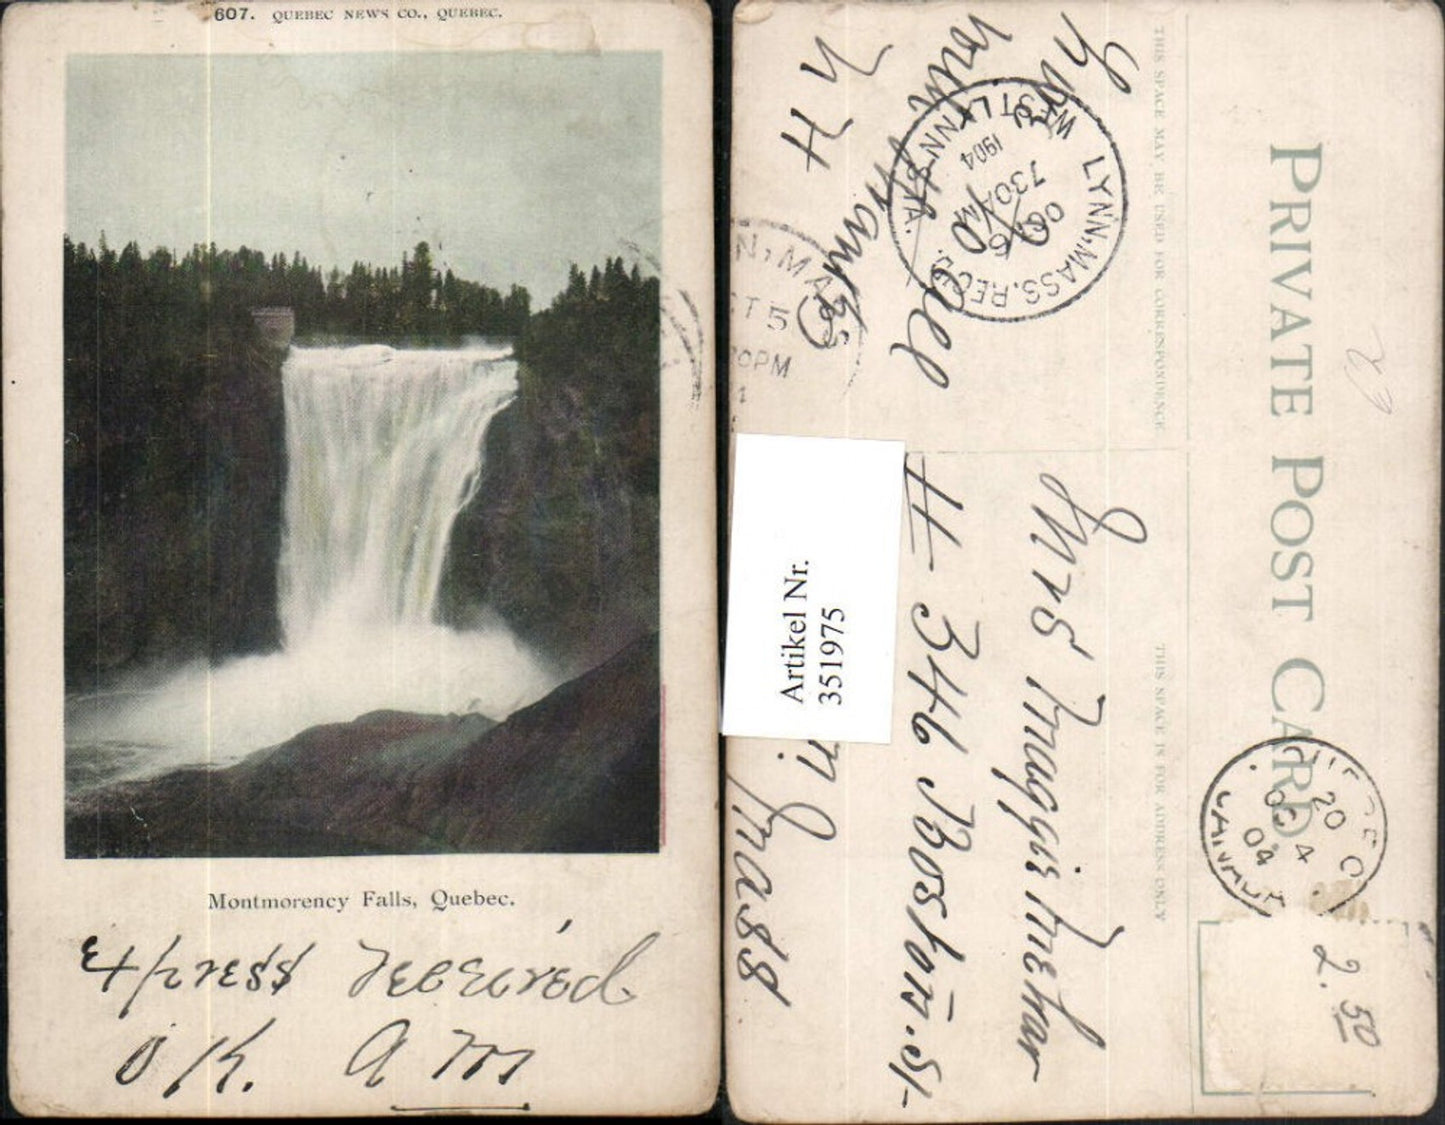 607. QUEBEC NEWS CO., QUEBEC.
Montmorency Falls, Quebec.
Express received
O K. A M
PRIVATE POST CARD
THIS SPACE MAY BE USED FOR CORRESPONDENCE
THIS SPACE IS FOR ADDRESS ONLY
LYNN, MASS. REC'D.
WEST LYNN STA.
OCT 6
730AM
1904
N, MASS
OCT 5
30PM
QUEBEC
20
OC 4
04
CANADA
2.50
Mrs Maggie
# 346 Boston. St
Lynn
Mass
Artikel Nr.
351975